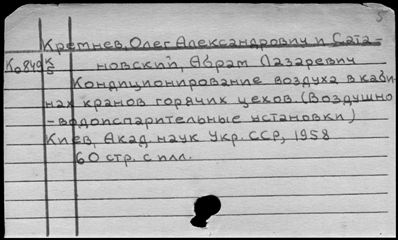 5
Кремнев, Олег Александрович и Сата-
Ко849 к/5 новский, Абрам Лазаревич
Кондиционирование воздуха в каби-
нах кранов горячих цехов. (Воздушно
-водоиспарительные установки)
Киев, Акад. наук Укр. ССР, 1958
60 стр. с илл.